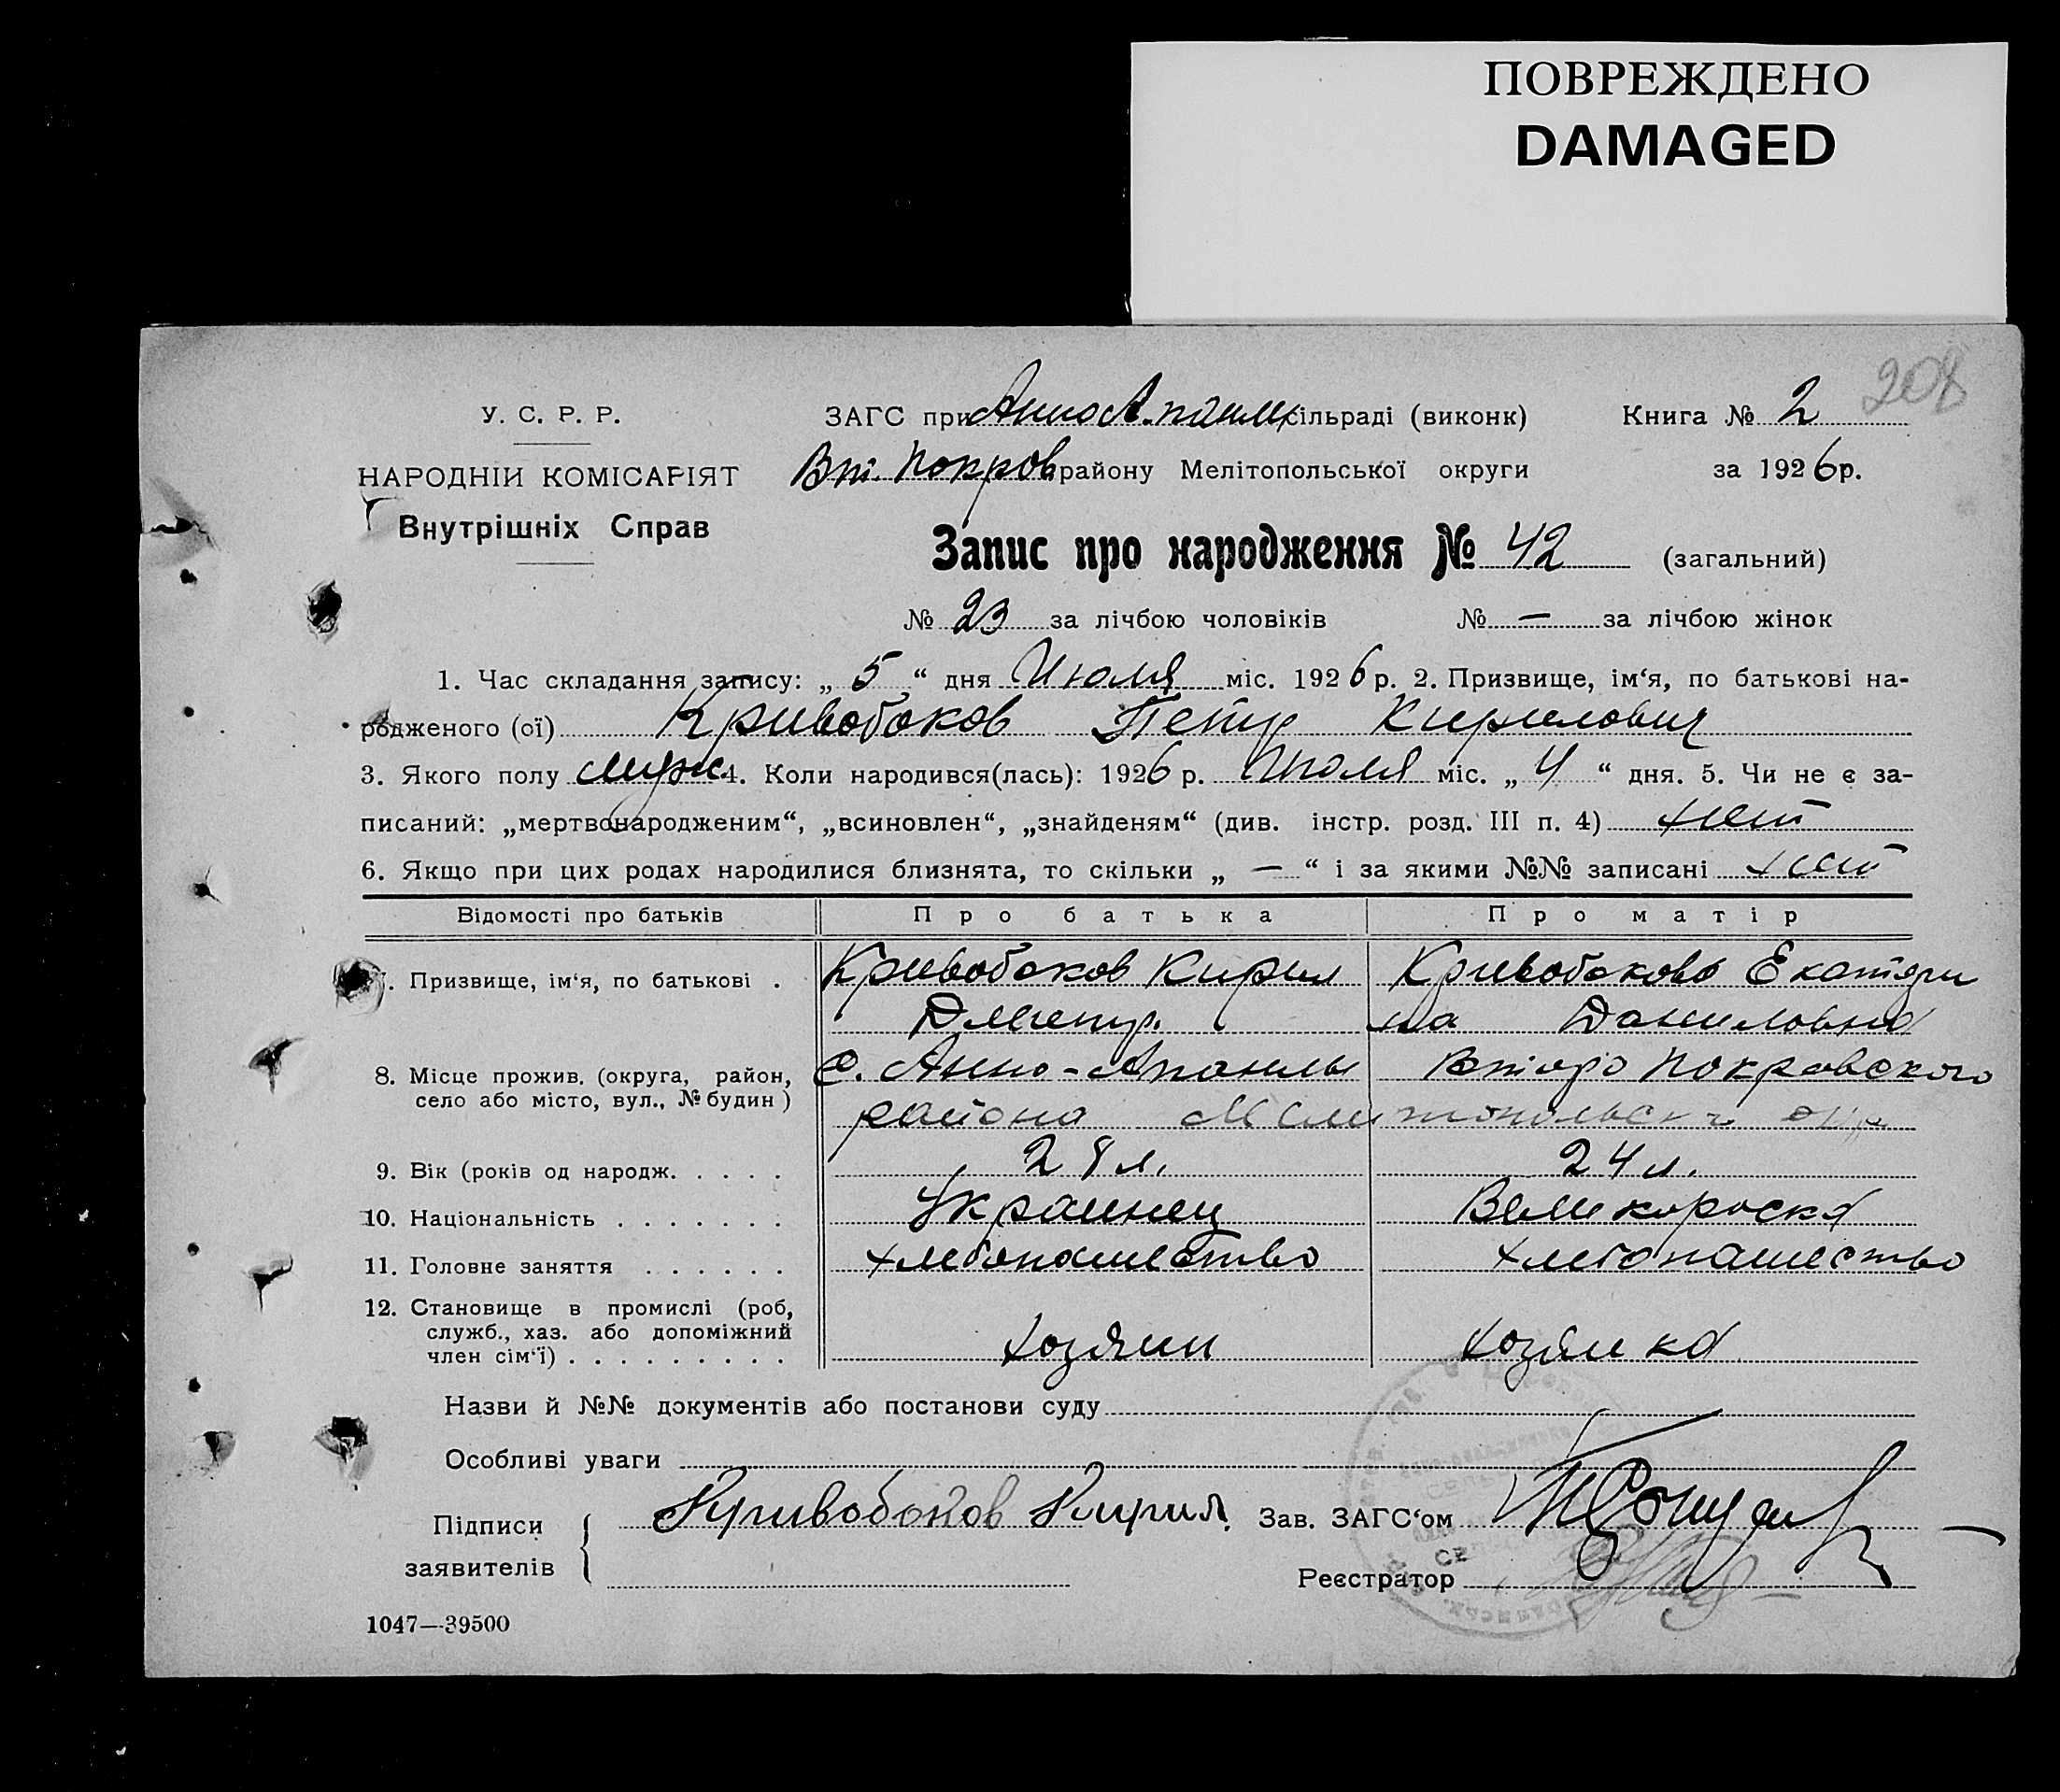 ПОВРЕЖДЕНО
DAMAGED
208
У. С. Р. Р.
ЗАГС при Анно А.паим. сільраді (виконк)
Книга № 2
НАРОДНІЙ КОМІСАРІЯТ
Вт. Покров. району Мелітопольської округи
за 1926 р.
Внутрішніх Справ
Запис про народження № 42 (загальний)
№ 23 за лічбою чоловіків № — за лічбою жінок
1. Час складання запису: „ 5 “ дня Июля міс. 1926 р. 2. Призвище, ім‘я, по батькові на-
родженого (ої) Кривобоков Петр Кирилович
3. Якого полу муж 4. Коли народився(лась): 1926 р. Июля міс. „ 4 “ дня. 5. Чи не є за-
писаний: „мертвонародженим“, „всиновлен“, „знайденям“ (див. інстр. розд. III п. 4) нет
6. Якщо при цих родах народилися близнята, то скільки „ — “ і за якими №№ записані нет
Відомості про батьків
Про батька
Про матір
7. Призвище, ім‘я, по батькові .
Кривобоков Кирил
Кривобокова Екатери
Дмитр.
на Даниловна
8. Місце прожив. (округа, район,
село або місто, вул., № будин)
с. Анно-Апанлы
Второ Покровского
района Мелитопольск окр
9. Вік (років од народж. . . . .
28 л.
24 л.
10. Національність . . . . . . .
Украинец
Великороска
11. Головне заняття . . . . . .
хлебопашество
хлебопашество
12. Становище в промислі (роб,
служб., хаз. або допоміжний
член сім‘ї) . . . . . . . . .
хозяин
хозяика
Назви й №№ документів або постанови суду
Особливі уваги
Підписи
заявителів
Кривобоков Кирил.
Зав. ЗАГС‘ом
Реєстратор
1047—39500